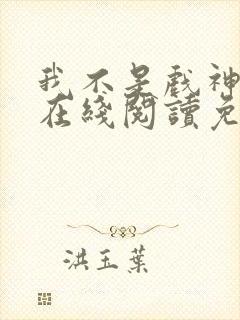 我不是戲神
在綫閱讀免
洪玉葉